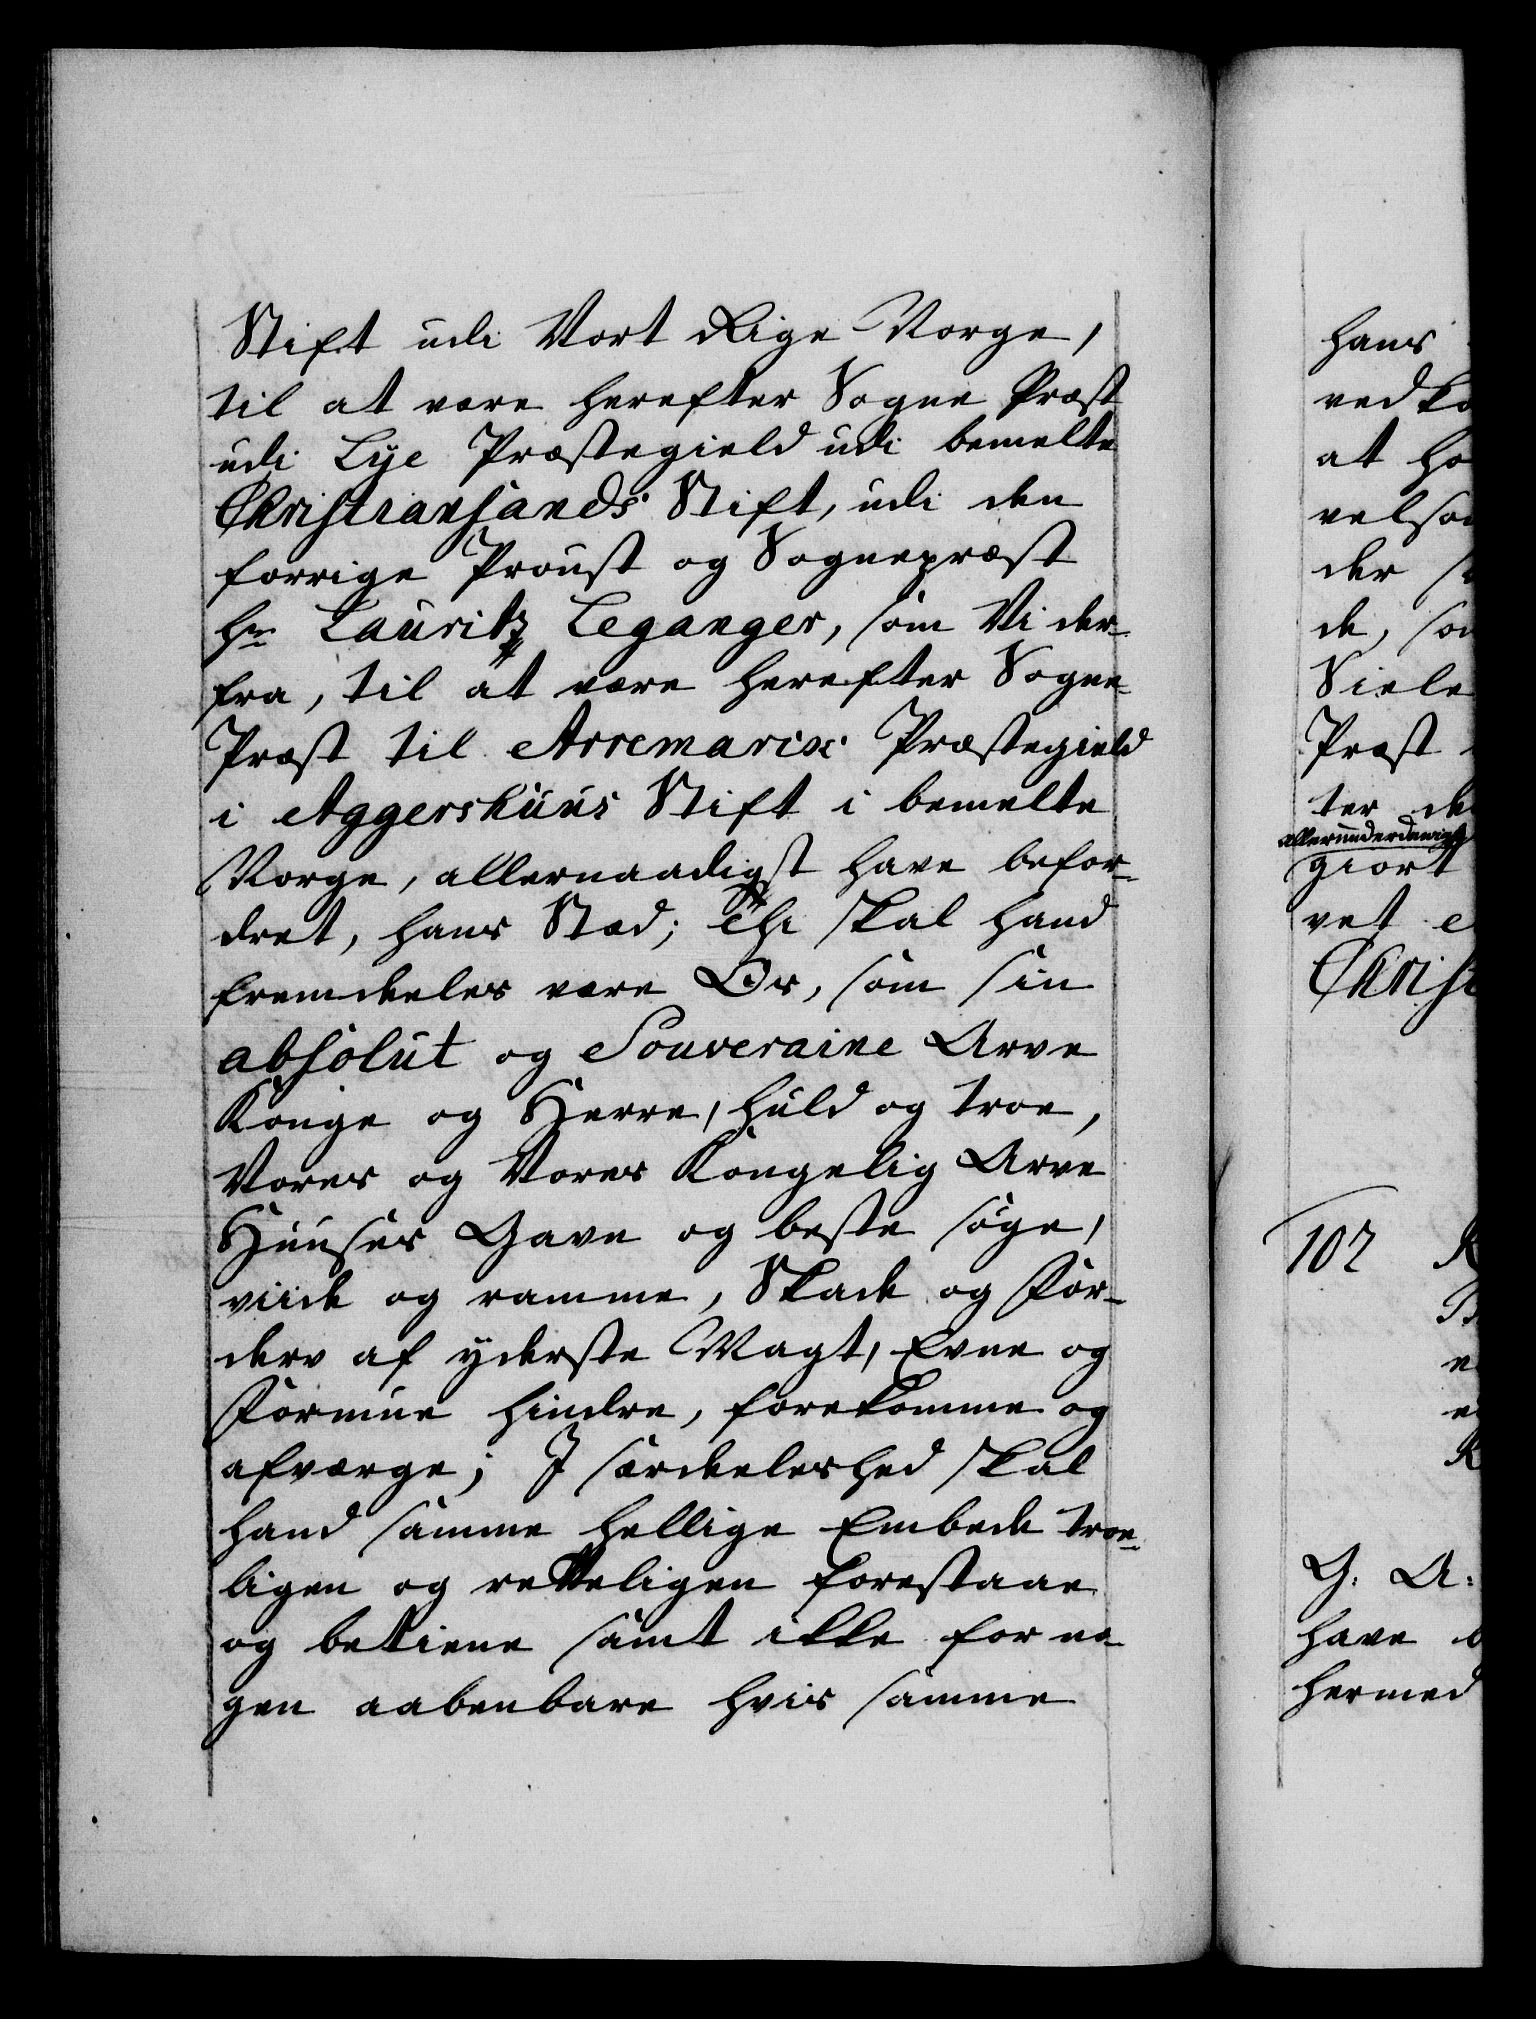 Stift udi Vort Rige Norge,
til at være herefter Sogne Præst
udi Lye Præstegield udi bemelte
Christiansands Stift, udi den
forrige Proust og Sognepræst
Hr Lauritz Leganger, som Vi der-
fra, til at være herefter Sogne-
Præst til Arremarix Præstegield
i Aggershuus Stift i bemelte
Norge, allernaadigst have befor-
dret, hans Stæd; Thi skal hand
fremdeeles være Os, som sin
absolut og Souveraine Arve
Konge og Herre, huld og troe,
Vores og Vores Kongelig Arve
Huuses Gavn og beste søge,
viide og ramme, Skade og For-
derv af yderste Magt, Evne og
Formue hindre, forekomme og
afværge; I særdeeleshed skal
hand samme hellige Embede troe-
ligen og retteligen forestaae
og betiene samt ikke for no-
gen aabenbare hvis samme
hans
vedko
at ho
velsom
der
de, som
Siele
Præst
ter de
allerunderdanigst
giort
vet
Christ
102
G: A:
have
hermed